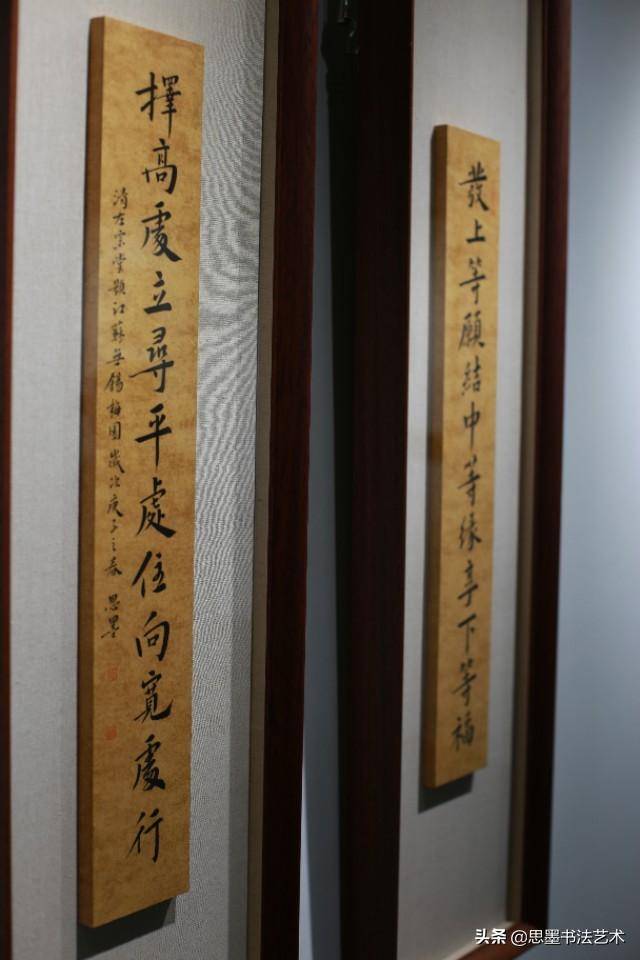 發上等願結中等緣享下等福
擇高處立尋平處住向寬處行
清左宗棠題江蘇無錫梅園歲次庚子之春 思墨
头条 @思墨书法艺术